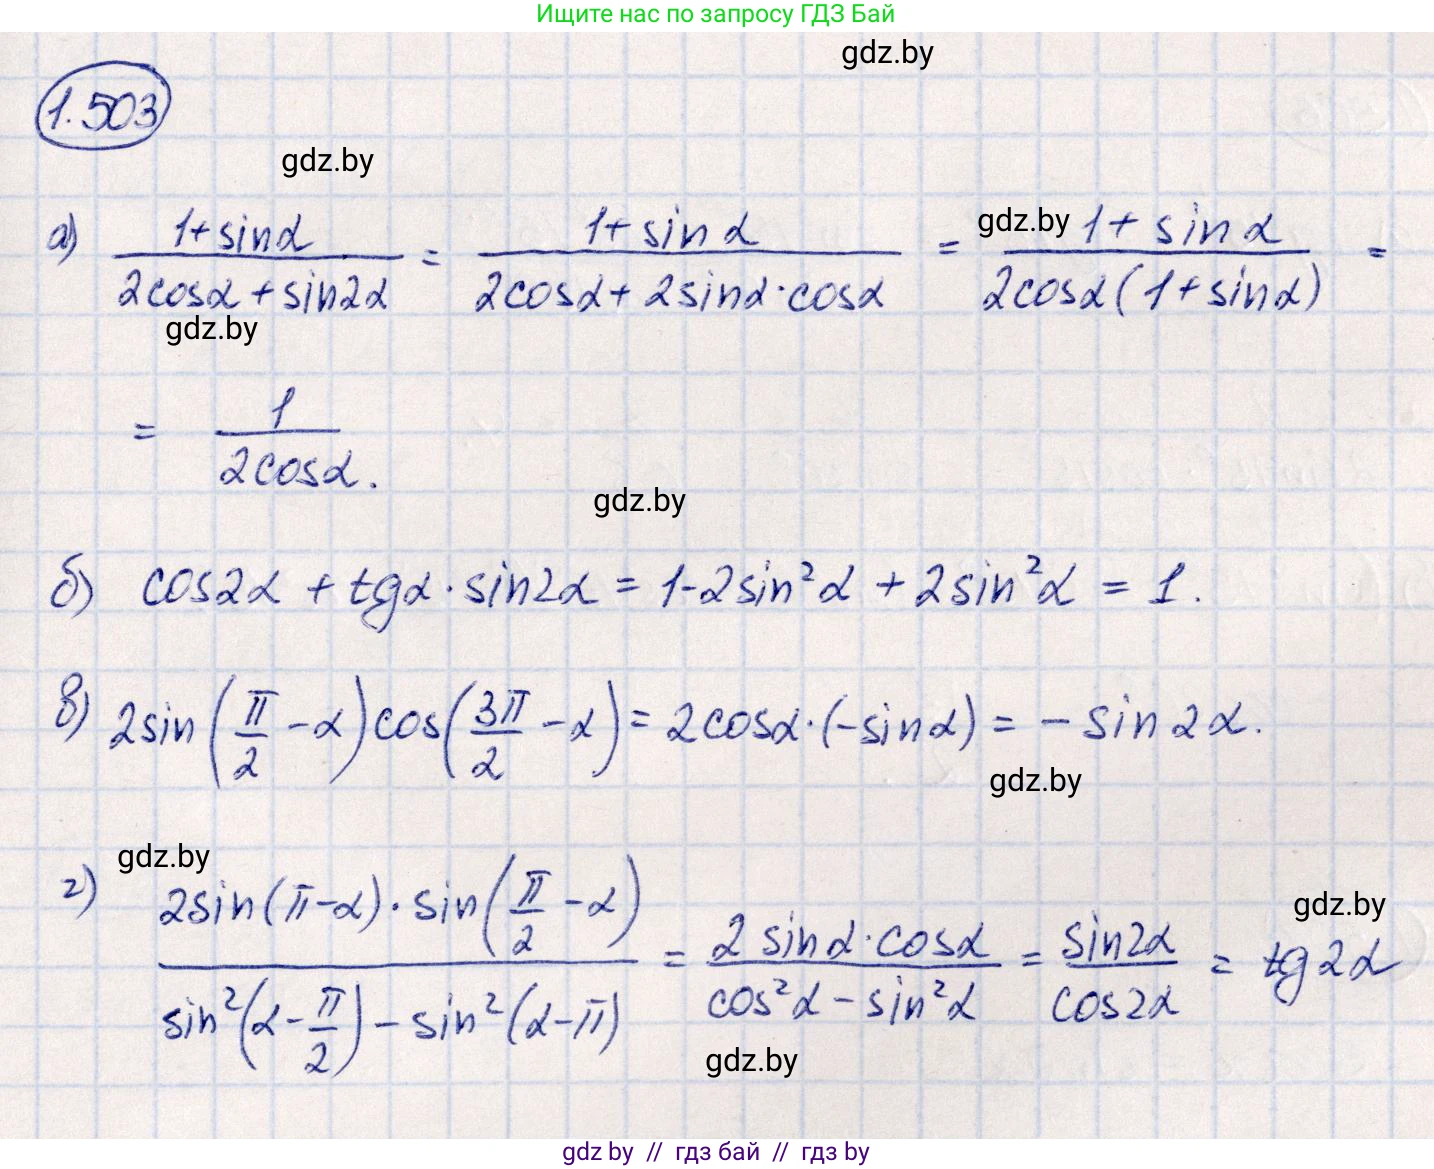 Ищите нас по запросу ГДЗ Бай
gdz.by
1.503
gdz.by
а) (1+sinα)/(2cosα+sin2α) = (1+sinα)/(2cosα+2sinα·cosα) = gdz.by (1+sinα)/(2cosα(1+sinα)) =
gdz.by
= 1/(2cosα).
gdz.by
б) cos2α + tgα·sin2α = 1-2sin²α + 2sin²α = 1.
в) 2sin(π/2 - α)cos(3π/2 - α) = 2cosα·(-sinα) = -sin2α.
gdz.by
gdz.by
г) (2sin(π-α)·sin(π/2 - α))/(sin²(α - π/2) - sin²(α-π)) = (2sinα·cosα)/(cos²α - sin²α) = sin2α/cos2α = tg2α
gdz.by
gdz.by
gdz.by // гдз бай // гдз by